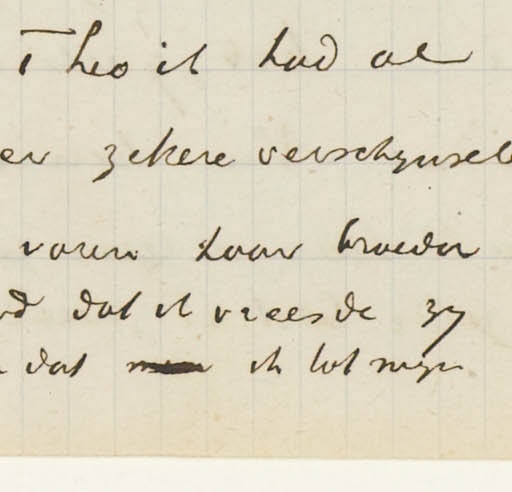 Theo ik had al
er zekere verschynsele
waren haar broeder
rd dat ik vreesde zy
dat ik tot myn